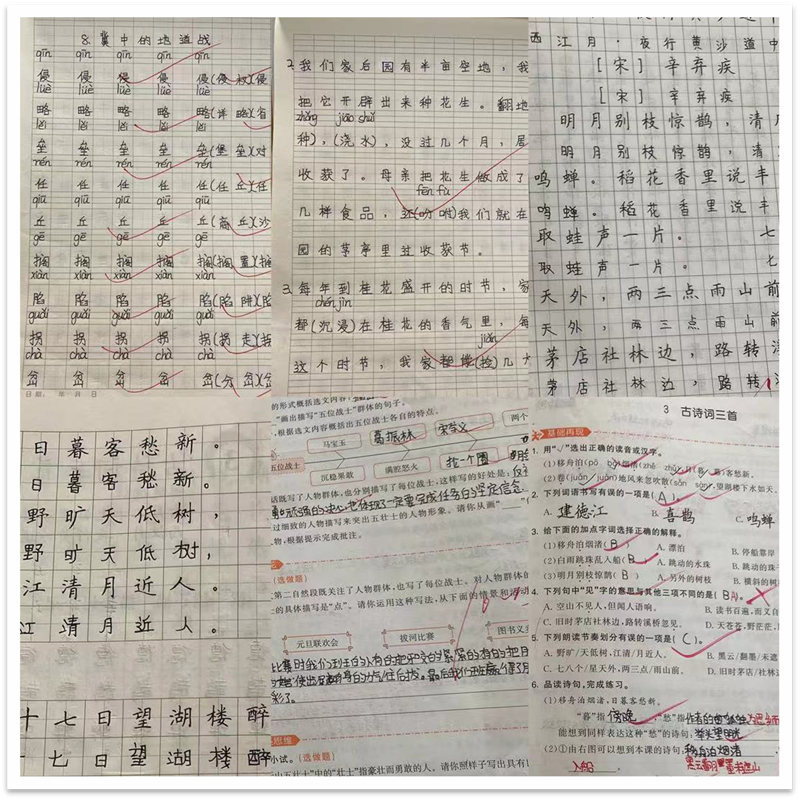 8.冀中的地道战
qīn qīn qīn qīn qīn
侵 侵 侵 侵 侵(侵权)侵
lüè lüè lüè lüè lüè
略 略 略 略 略(详略)省
lěi lěi lěi lěi lěi
垒 垒 垒 垒 垒(堡垒)对
rén rén rén rén rén
任 任 任 任 任(任丘)任
qiū qiū qiū qiū qiū
丘 丘 丘 丘 丘(商丘)沙
gē gē gē gē gē
搁 搁 搁 搁 搁(搁置)搁
xiàn xiàn xiàn xiàn xiàn
陷 陷 陷 陷 陷(陷阱)陷
guǎi guǎi guǎi guǎi guǎi
拐 拐 拐 拐 拐(拐走)拐
chà chà chà chà chà
岔 岔 岔 岔 岔(分岔)岔
日期: 年 月 日
2.我们家后园有半亩空地,我
把它开辟出来种花生。翻地
zhǒng jiāo shuǐ
种),(浇水),没过几个月,居
收获了。母亲把花生做成了
fēn fù
几样食品,还(吩咐)我们就在
园的茅亭里过收获节。
3.每年到桂花盛开的时节,家
chén jìn
都(沉浸)在桂花的香气里,每
jiǎn
这个时节,我家都捡(捡)几大
西江月·夜行黄沙道中
[宋]辛弃疾
[宋]辛弃疾
明月别枝惊鹊,清
明月别枝惊鹊,清
鸣蝉。稻花香里说丰
鸣蝉。稻花香里说丰
取蛙声一片。七
取蛙声一片。七
天外,两三点雨山前
天外,两三点雨山前
茅店社林边,路转
茅店社林边,路转
日暮客愁新。
日暮客愁新。
野旷天低树,
野旷天低树,
江清月近人。
江清月近人。
十七日望湖楼醉
十七日望湖楼醉
的形式概括选文内容
画出描写“五位战士”群体的句子。
根据选文内容概括出五位战士各自的特点。
马宝玉 葛振林 宋学义
五位战士
沉稳果敢 满腔怒火
话既写了人物群体,也分别描写了每位战士,这样写的好处是:
过细致的人物描写来突出五壮士的人物形象。请你从画“
物,根据提示完成批注。
(选做题)
第二自然段既关注了人物群体,也写了每位战士。对人物群体的
士的具体描写是“点”。请你运用这种写法,从下面的情景和活动
元旦联欢会 拔河比赛 图书义
思维 (选做题)
小试。
山五壮士”中的“壮士”指豪壮而勇敢的人。请你照样子写出具有
3 古诗词三首
基础再现
1. 用“√”选出正确的读音或汉字。
2. 下列词语书写有误的一项是( A )。
A. 建德江 B. 喜鹊 C. 鸣蝉
3. 给下面的加点字词选择正确的解释。
(1)移舟泊烟渚( B ) A. 漂泊 B. 停船靠岸
(2)白雨跳珠乱入船( B ) A. 跳动的水珠 B. 跳动的珠
(3)明月别枝惊鹊( B ) A. 另外的树枝 B. 横斜的树
4. 下列句中“见”字的意思与其他三项不同的是(
A. 空山不见人,但闻人语响。 B. 读书百遍,而义自
C. 旧时茅店社林边,路转溪桥忽见。 D. 天苍苍,野茫茫,
5. 下列朗读节奏划分有误的一项是( C )。
A. 野旷/天低树,江清/月近人。 B. 黑云/翻墨/未遮
C. 七八个/星天外,两三点/雨山前。 D. 旧时茅店/社林边
6. 品读诗句,完成练习。
(1)移舟泊烟渚,日暮客愁新。
“暮”指 傍晚
能想到同样表达这种“愁”的诗句:
(2)①由右图可以想到本课的诗句:
入船